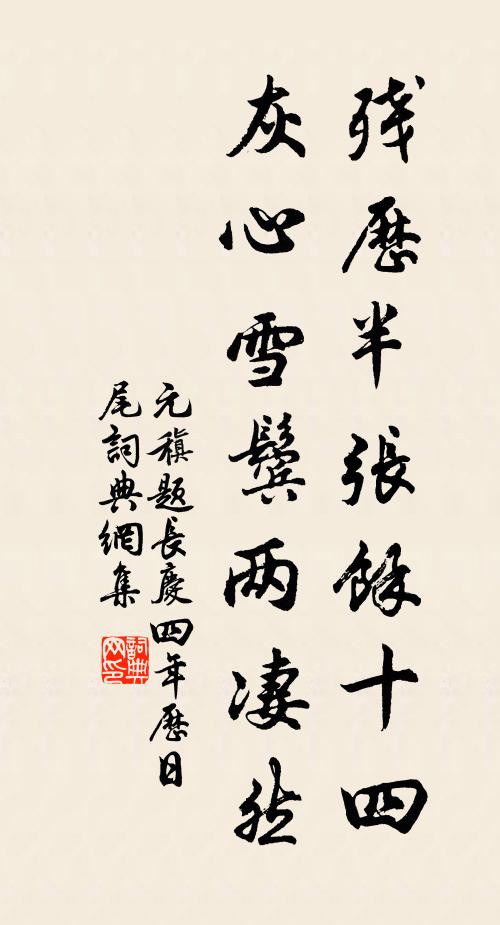 残歷半張餘十四
灰心雪鬢两凄然
元稹題長慶四年歷日
尾詞典網集
詞典
网印